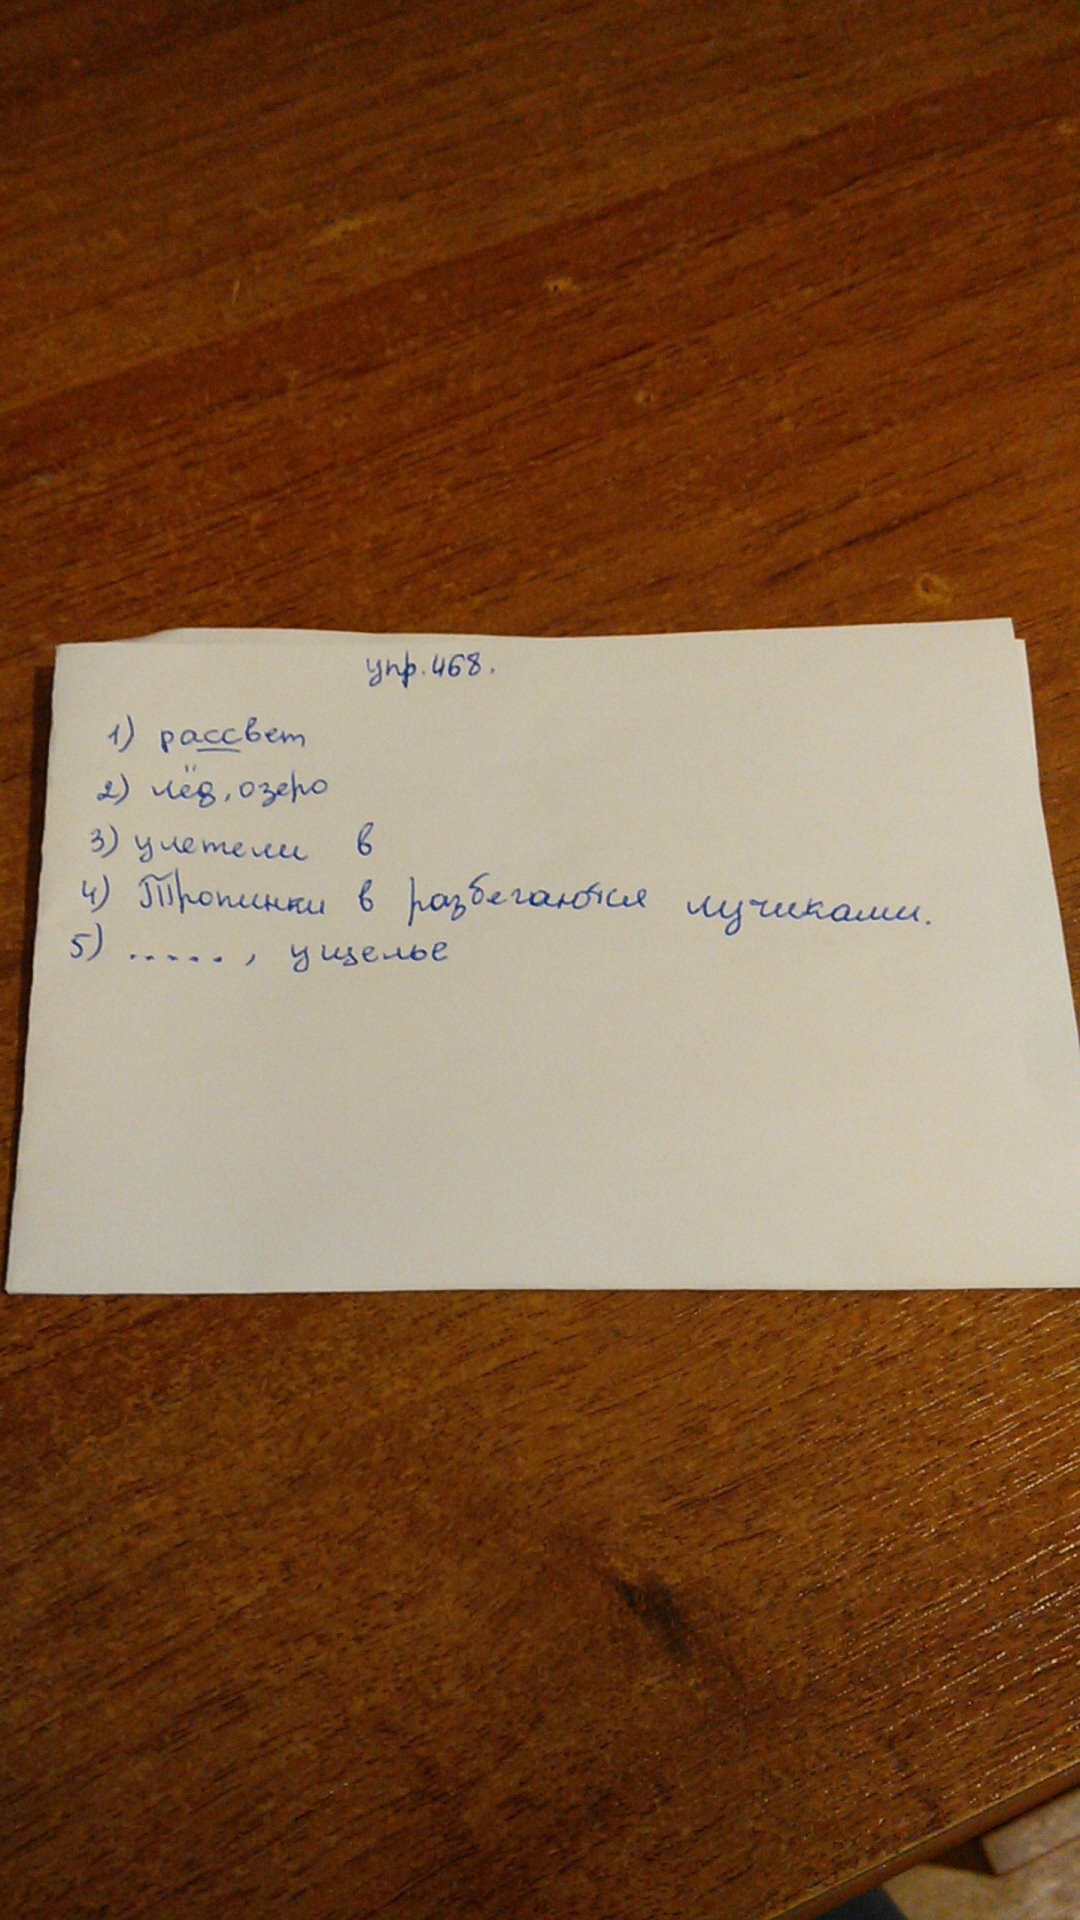 упр. 468.
1) рассвет
2) лёд, озеро
3) улетели в
4) Тропинки в разбегаются лучиками.
5) ....., ущелье